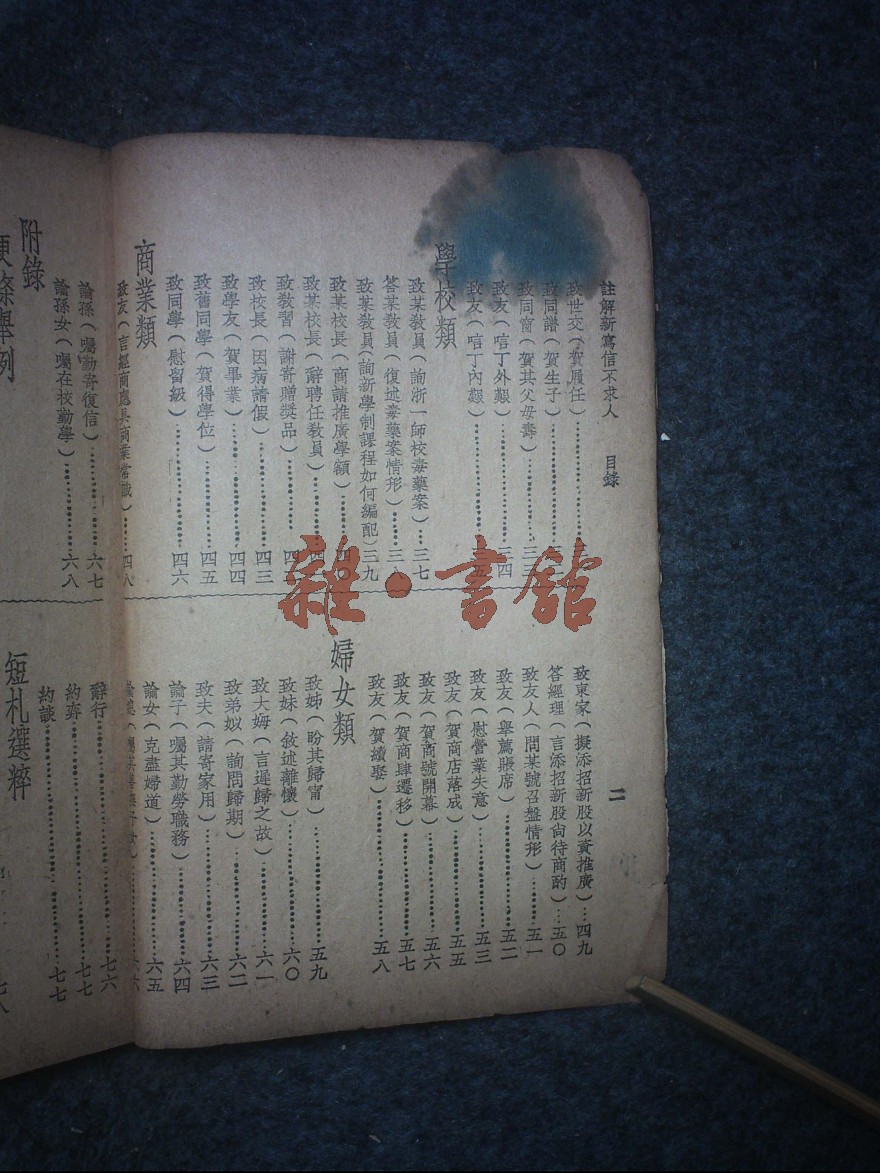 註解新寫信不求人 目錄 二
致世交(賀履任)
致同譜(賀生子)
致同窗(賀其父母壽)三三
致友(唁丁外艱)三四
致友(唁丁內艱)三五
學校類
致某敎員(詢浙一師校毒藥案)三七
答某敎員(復述毒藥案情形)三八
致某敎員(詢新學制課程如何編配)三九
致某校長(商請推廣學額)四〇
致某校長(辭聘任敎員)
致敎習(謝寄贈獎品)
致校長(因病請假)四三
致學友(賀畢業)四四
致舊同學(賀得學位)四五
致同學(慰留級)四六
商業類
致友(言經商應具商業常識)四八
致東家(擬添招新股以資推廣)四九
答經理(言添招新股尙待商酌)五〇
致友人(問某號召盤情形)五一
致友(舉薦賬席)五二
致友(慰營業失意)五三
致友(賀商店落成)五五
致友(賀商號開幕)五六
致友(賀商肆遷移)五七
致友(賀續娶)五八
婦女類
致姊(盼其歸甯)五九
致妹(敍述離懷)六〇
致大姆(言遲歸之故)六一
致弟姒(詢問歸期)六二
致夫(請寄家用)六三
諭子(囑其勤勞職務)六四
諭女(克盡婦道)六五
六六
諭孫(囑勤寄復信)六七
諭孫女(囑在校勤學)六八
附錄
便條舉例
辭行七六
約弈七七
約談七七
短札選粹
雜·書館